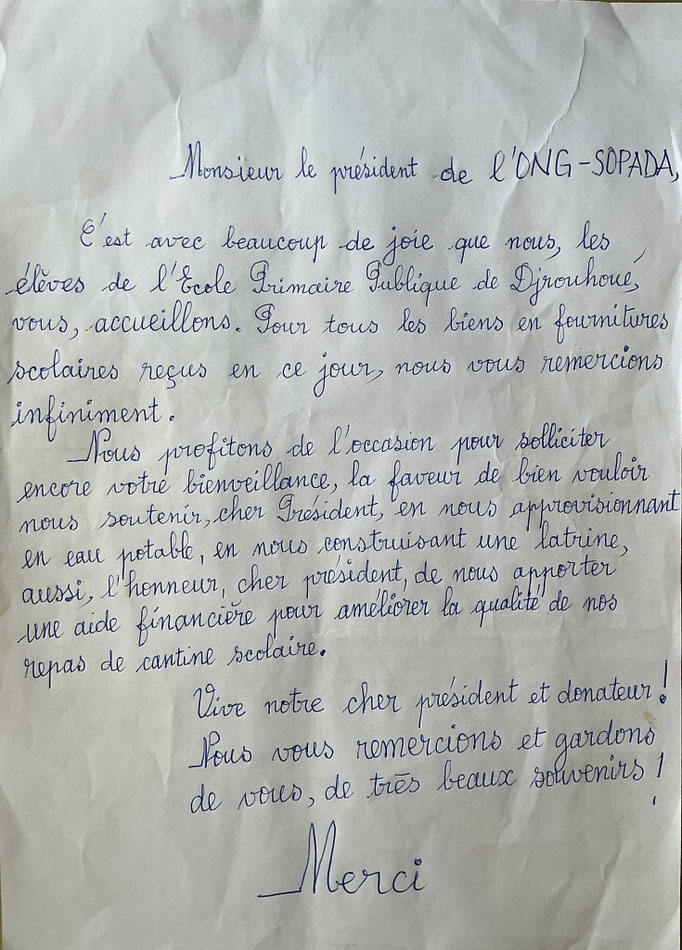 Monsieur le président de l'ONG-SOPADA,
C'est avec beaucoup de joie que nous, les
élèves de l'Ecole Primaire Publique de Djrouhoué,
vous, accueillons. Pour tous les biens en fournitures
scolaires reçus en ce jour, nous vous remercions
infiniment.
Nous profitons de l'occasion pour solliciter
encore votre bienveillance, la faveur de bien vouloir
nous soutenir, cher Président, en nous approvisionnant
en eau potable, en nous construisant une latrine,
aussi, l'honneur, cher président, de nous apporter
une aide financière pour améliorer la qualité de nos
repas de cantine scolaire.
Vive notre cher président et donateur !
Nous vous remercions et gardons
de vous, de très beaux souvenirs !
Merci